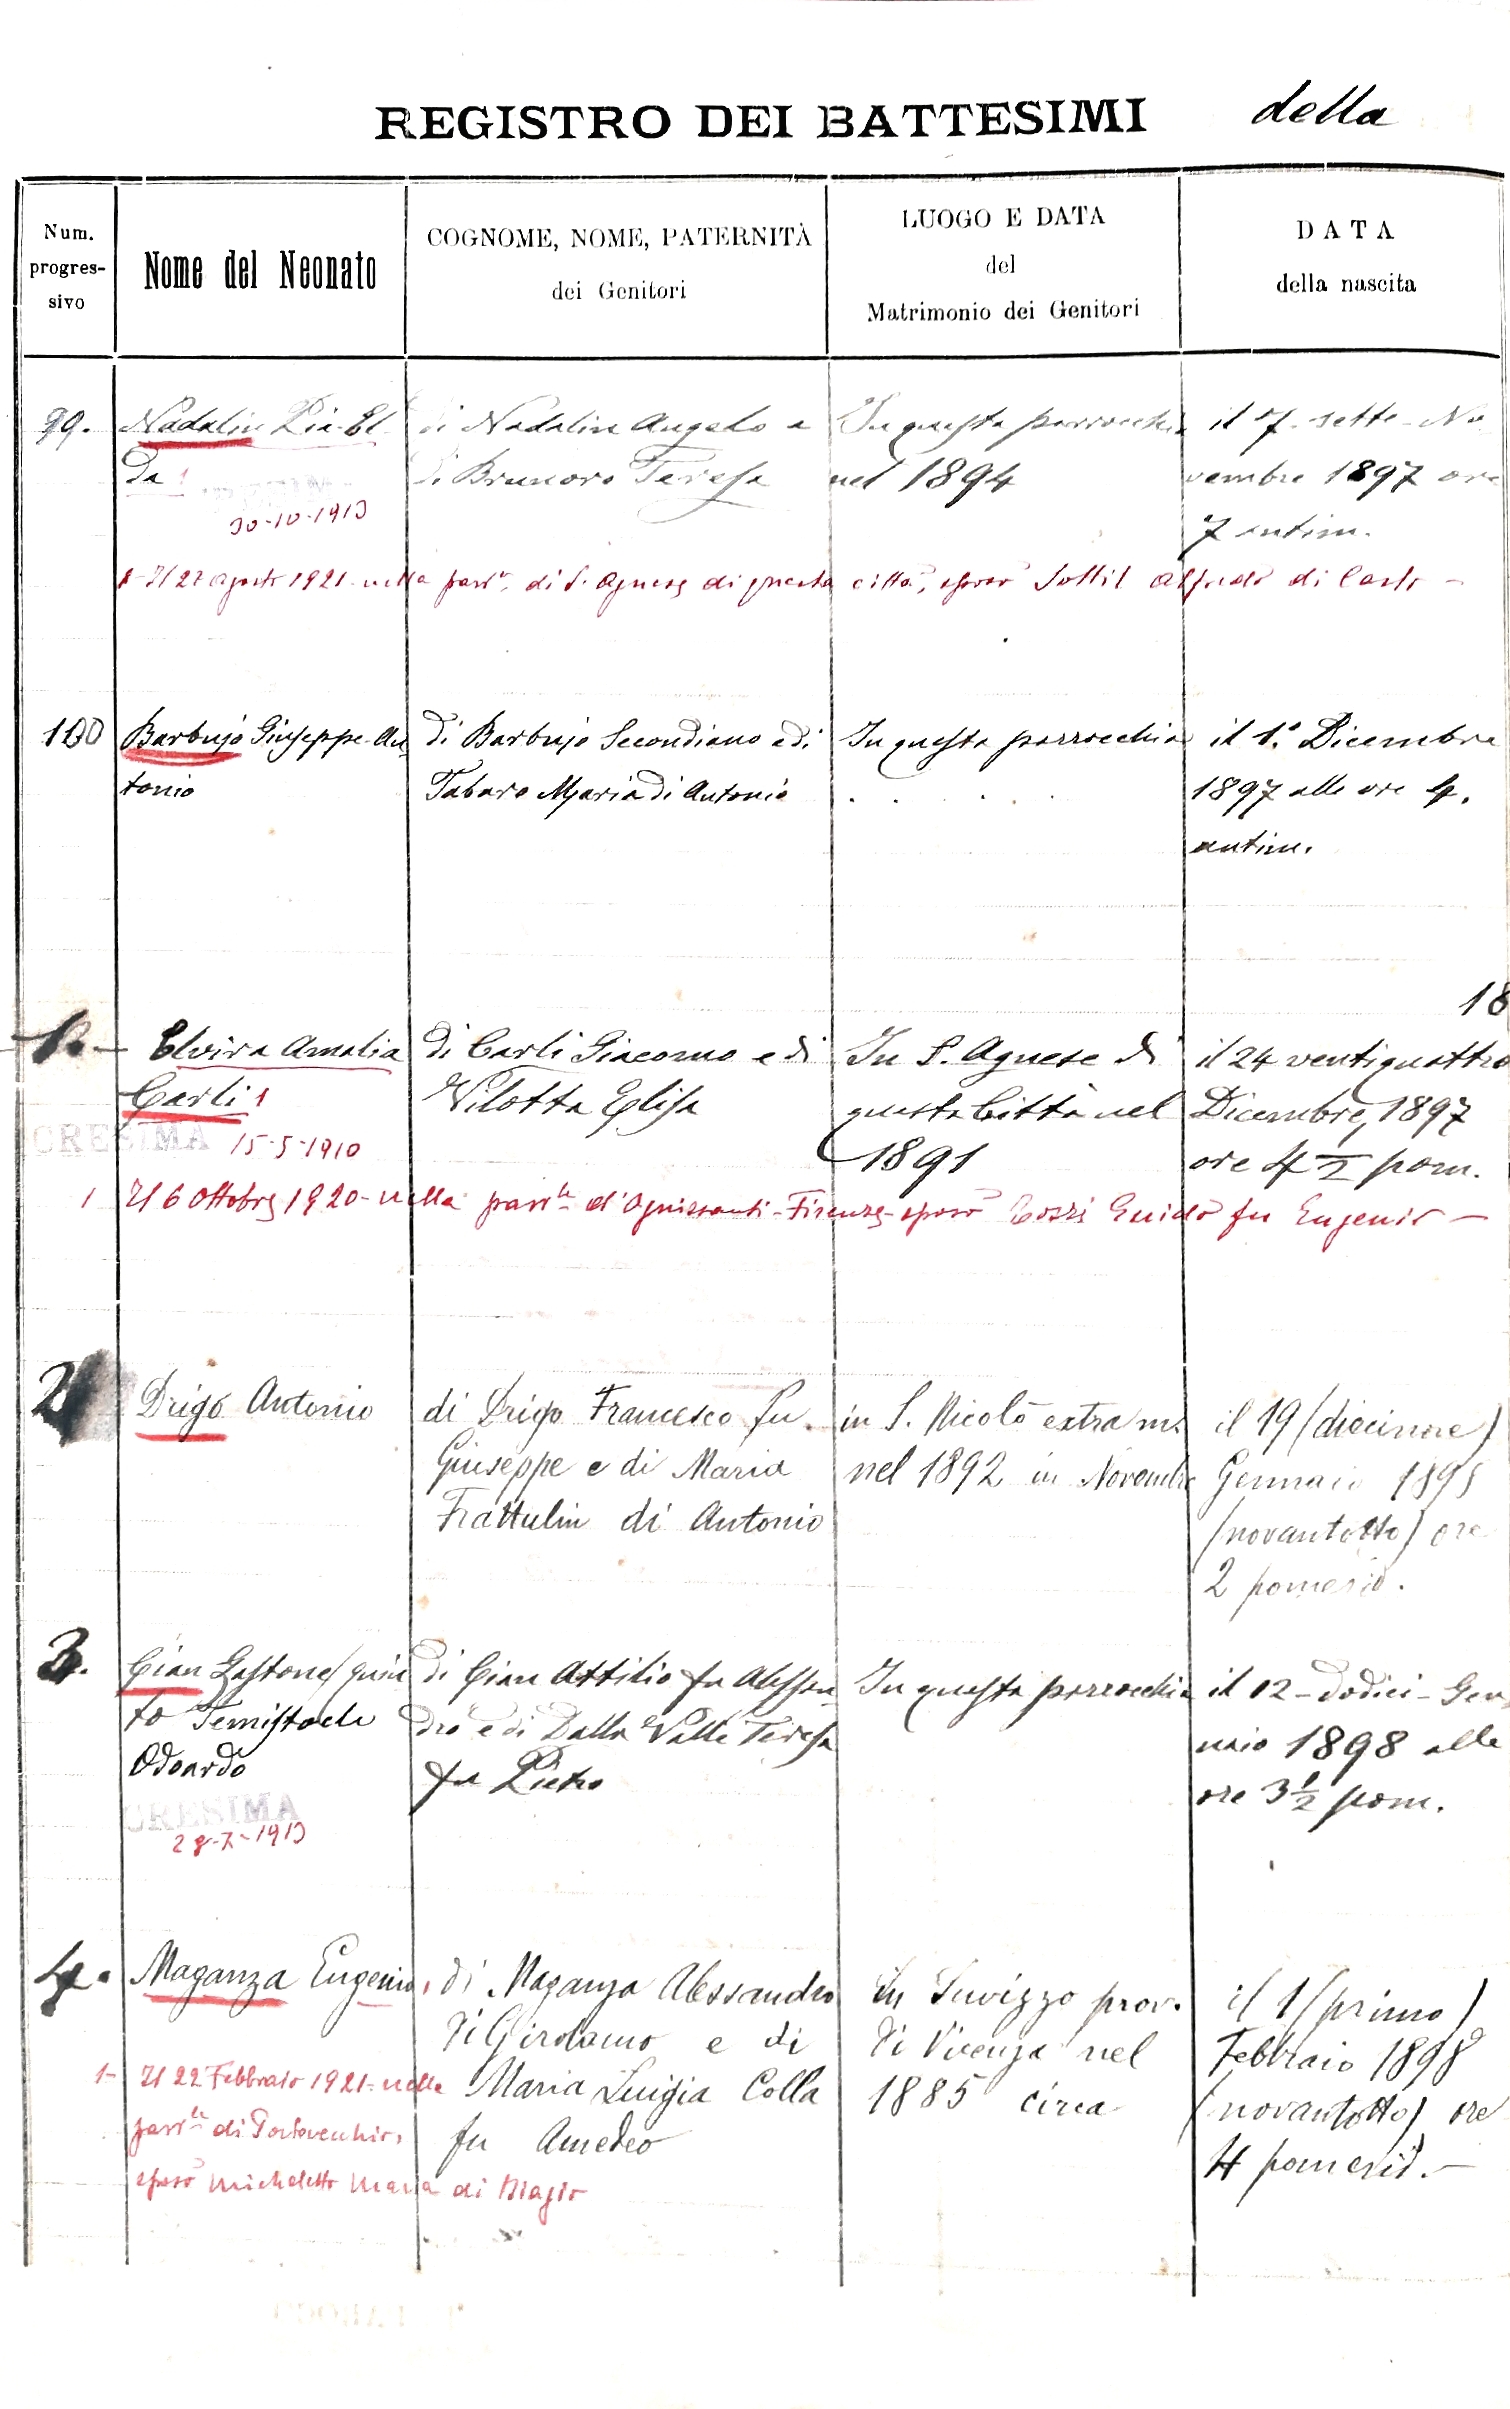 REGISTRO DEI BATTESIMI della
Num. progres- sivo
Nome del Neonato
COGNOME, NOME, PATERNITÀ
dei Genitori
LUOGO E DATA
del
Matrimonio dei Genitori
DATA
della nascita
99.
Nadalin Pia El
da 1
30-10-1913
di Nadalin Angelo e
di Brunoro Teresa
In questa parrocchia
nel 1894
il 7 - sette - No
vembre 1897 ore
7 antim.
1- Il 27 agosto 1921 - nella parr. di S. Agnese di questa città, sposò Sottil Alfredo di Carlo -
100
Barbujo Giuseppe An
tonio
di Barbujo Secondiano e di
Tabaro Maria di Antonio
In questa parrocchia
. . . . .
il 1.º Dicembre
1897 alle ore 4.
antim.
18
1. -
Elvira Amalia
Carli 1
CRESIMA 15-5-1910
di Carli Giacomo e di
Vilotta Elisa
In S. Agnese di
questa Città nel
1891
il 24 ventiquattro
Dicembre, 1897
ore 4 ½ pom.
1 Il 6 Ottobre 1920 - nella parr.le d'Ognissanti - Firenze - sposò Guido fu Eugenio -
2
Drigo Antonio
di Drigo Francesco fu
Giuseppe e di Maria
Frattulin di Antonio
in S. Nicolò extra m.
nel 1892 in Novembre
il 19 (diecinove)
Gennaio 1898
(novantotto) ore
2 pomerid.
3.
Cian Gastone Quin
to Temistocle
Odoardo
CRESIMA
28-7-1913
di Cian Attilio fu Alessan
dro e di Dalla Valle Teresa
fu Pietro
In questa parrocchia
il 12 - dodici - Gen
naio 1898 alle
ore 3 ½ pom.
4.
Maganza Eugenio 1
di Maganza Alessandro
di Girolamo e di
Maria Luigia Colla
fu Amedeo
In Sovizzo prov.
di Vicenza nel
1885 circa
il 1 (primo)
Febbraio 1898
(novantotto) ore
4 pomerid. -
1- Il 22 Febbraio 1921 - nella
parr.le di Portovecchio,
sposò Micheletto Maria di Biagio